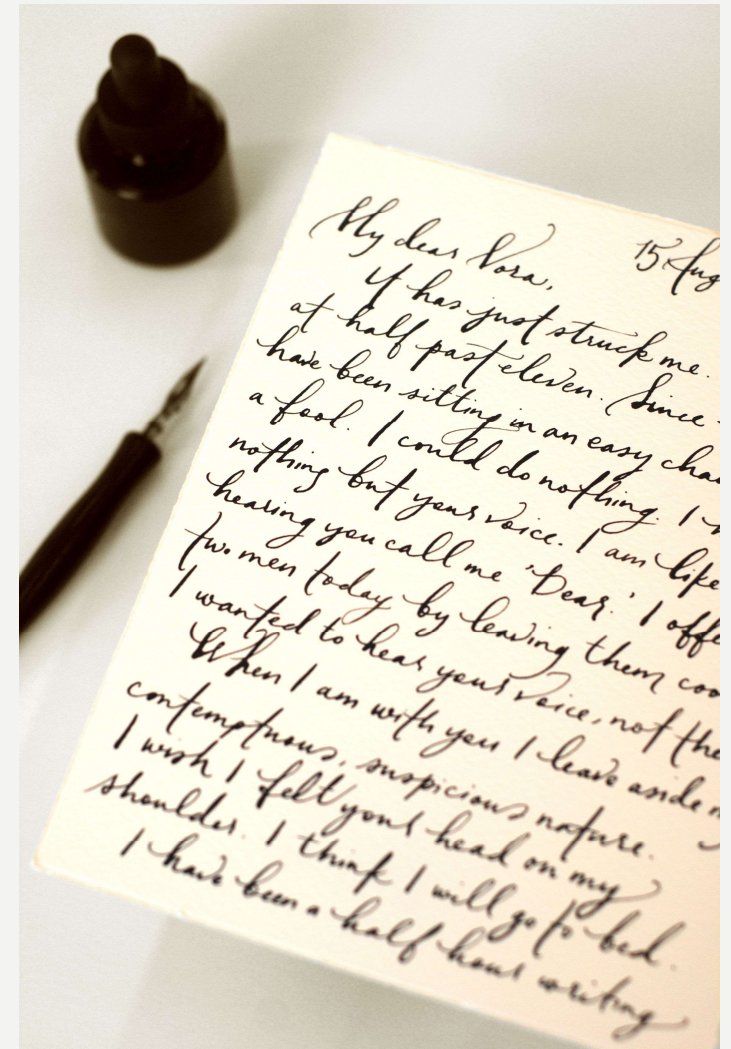 My dear Nora, 15 Aug
It has just struck me.
at half past eleven. Since
have been sitting in an easy chai
a fool. I could do nothing. I
nothing but your voice. I am like
hearing you call me 'Dear.' I offe
two men today by leaving them coo
I wanted to hear your voice, not the
When I am with you I leave aside m
contemptuous, suspicious nature.
I wish I felt your head on my
shoulder. I think I will go to bed.
I have been a half hour writing